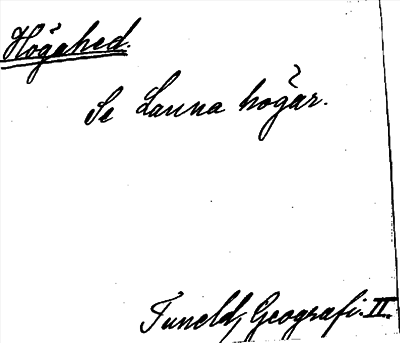 Högahed.
Se Lanna högar.
Tuneld, Geografi. II.